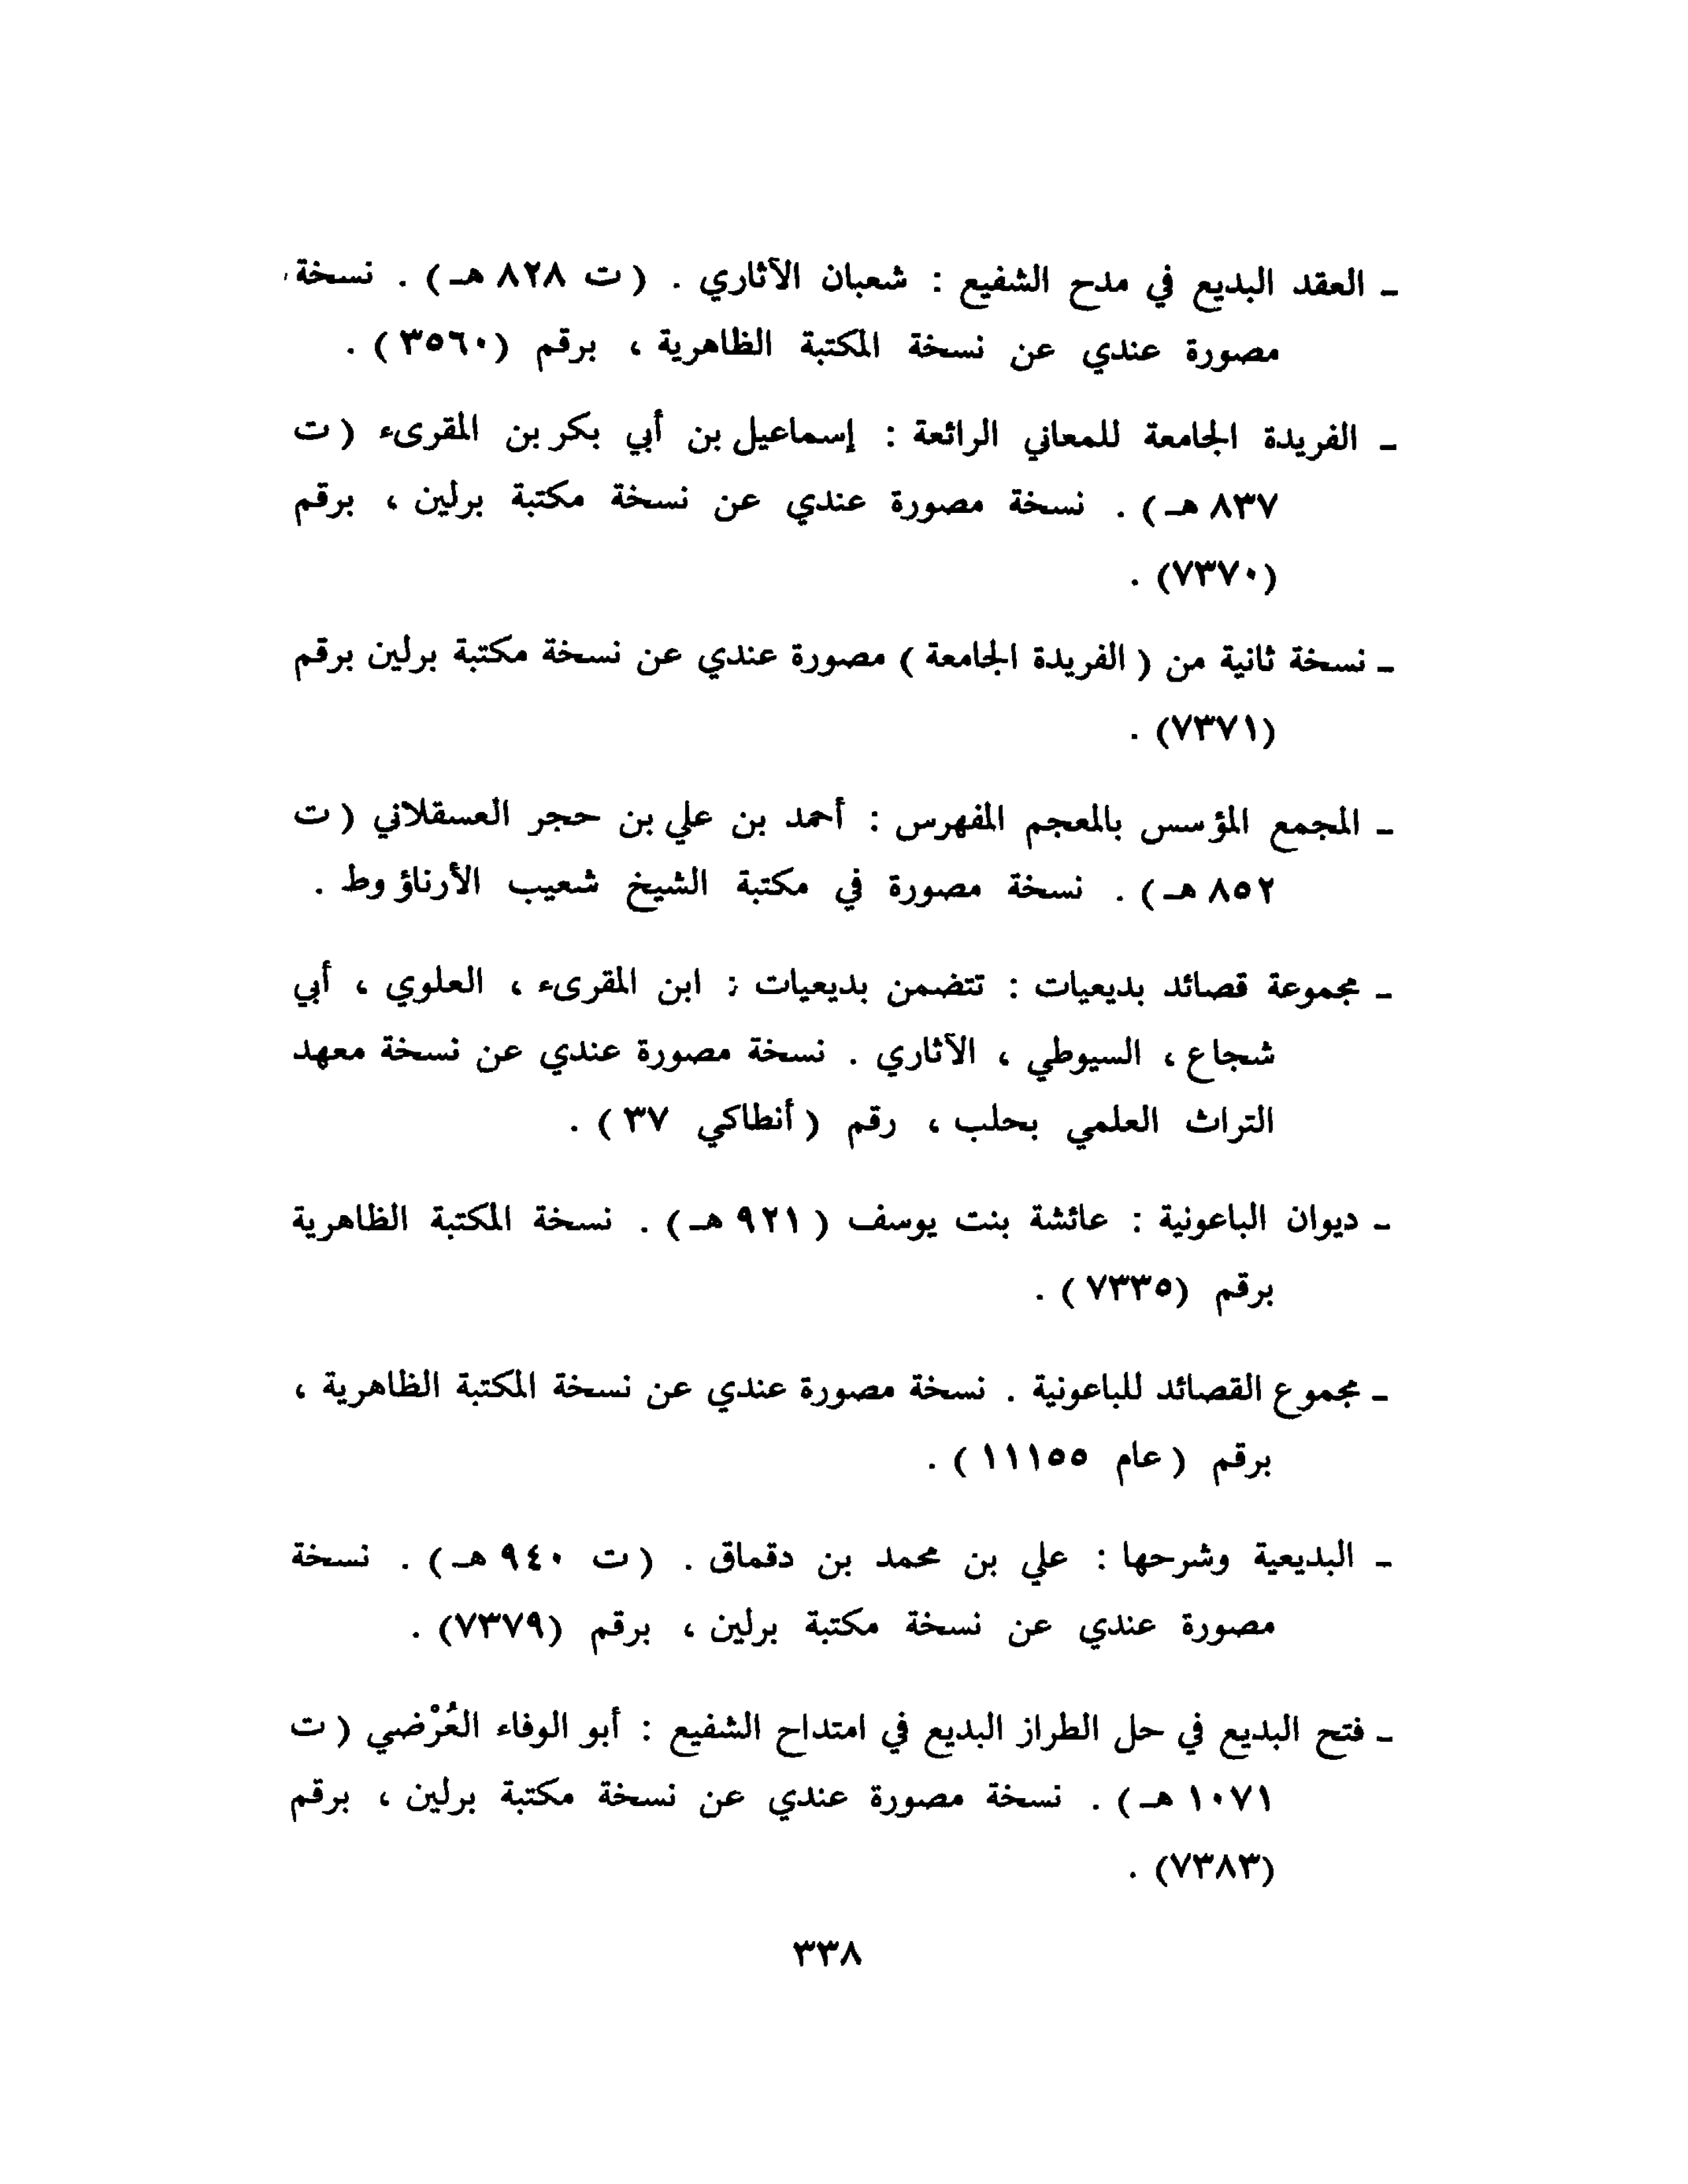 ـ العقد البديع في مدح الشفيع : شعبان الآثاري . ( ت ٨٢٨ هـ ) . نسخة
مصورة عندي عن نسخة المكتبة الظاهرية ، برقم (٣٥٦٠ ) .
ـ الفريدة الجامعة للمعاني الرائعة : إسماعيل بن أبي بكر بن المقرىء ( ت
٨٣٧ هـ ) . نسخة مصورة عندي عن نسخة مكتبة برلين ، برقم
(٧٣٧٠) .
ـ نسخة ثانية من ( الفريدة الجامعة ) مصورة عندي عن نسخة مكتبة برلين برقم
(٧٣٧١) .
ـ المجمع المؤسس بالمعجم المفهرس : أحمد بن علي بن حجر العسقلاني ( ت
٨٥٢ هـ ) . نسخة مصورة في مكتبة الشيخ شعيب الأرناؤوط .
ـ مجموعة قصائد بديعيات : تتضمن بديعيات : ابن المقرىء ، العلوي ، أبي
شجاع ، السيوطي ، الآثاري . نسخة مصورة عندي عن نسخة معهد
التراث العلمي بحلب ، رقم ( أنطاكي ٣٧ ) .
ـ ديوان الباعونية : عائشة بنت يوسف ( ٩٢١ هـ ) . نسخة المكتبة الظاهرية
برقم (٧٣٣٥ ) .
ـ مجموع القصائد للباعونية . نسخة مصورة عندي عن نسخة المكتبة الظاهرية ،
برقم ( عام ١١١٥٥ ) .
ـ البديعية وشرحها : علي بن محمد بن دقماق . ( ت ٩٤٠ هـ ) . نسخة
مصورة عندي عن نسخة مكتبة برلين ، برقم (٧٣٧٩) .
ـ فتح البديع في حل الطراز البديع في امتداح الشفيع : أبو الوفاء العُرْضي ( ت
١٠٧١ هـ ) . نسخة مصورة عندي عن نسخة مكتبة برلين ، برقم
(٧٣٨٣) .
٣٣٨